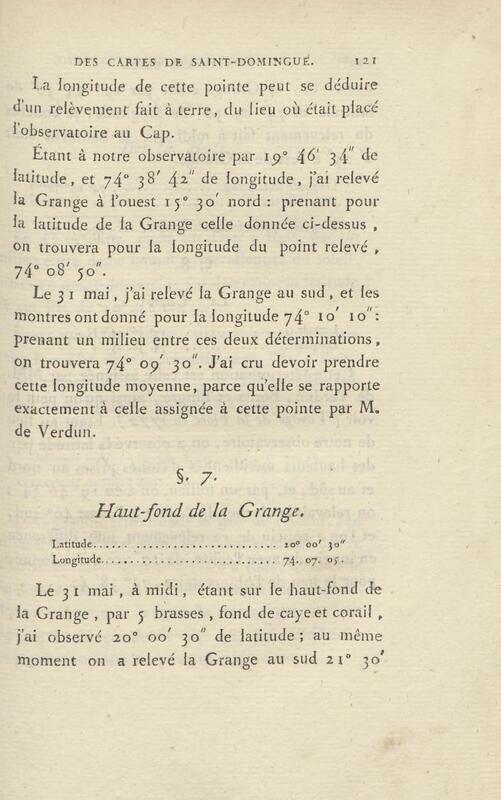 DES CARTES DE SAINT-DOMINGUE. 121
La longitude de cette pointe peut se déduire
d'un relèvement fait à terre, du lieu où était placé
l'observatoire au Cap.
Étant à notre observatoire par 19° 46' 34" de
latitude, et 74° 38' 42" de longitude, j'ai relevé
la Grange à l'ouest 15° 30' nord : prenant pour
la latitude de la Grange celle donnée ci-dessus,
on trouvera pour la longitude du point relevé,
74° 08' 50".
Le 31 mai, j'ai relevé la Grange au sud, et les
montres ont donné pour la longitude 74° 10' 10" :
prenant un milieu entre ces deux déterminations,
on trouvera 74° 09' 30". J'ai cru devoir prendre
cette longitude moyenne, parce qu'elle se rapporte
exactement à celle assignée à cette pointe par M.
de Verdun.
§. 7.
Haut-fond de la Grange.
Latitude.............................. 20° 00' 30"
Longitude............................. 74. 07. 05.
Le 31 mai, à midi, étant sur le haut-fond de
la Grange, par 5 brasses, fond de caye et corail,
j'ai observé 20° 00' 30" de latitude ; au même
moment on a relevé la Grange au sud 21° 30'